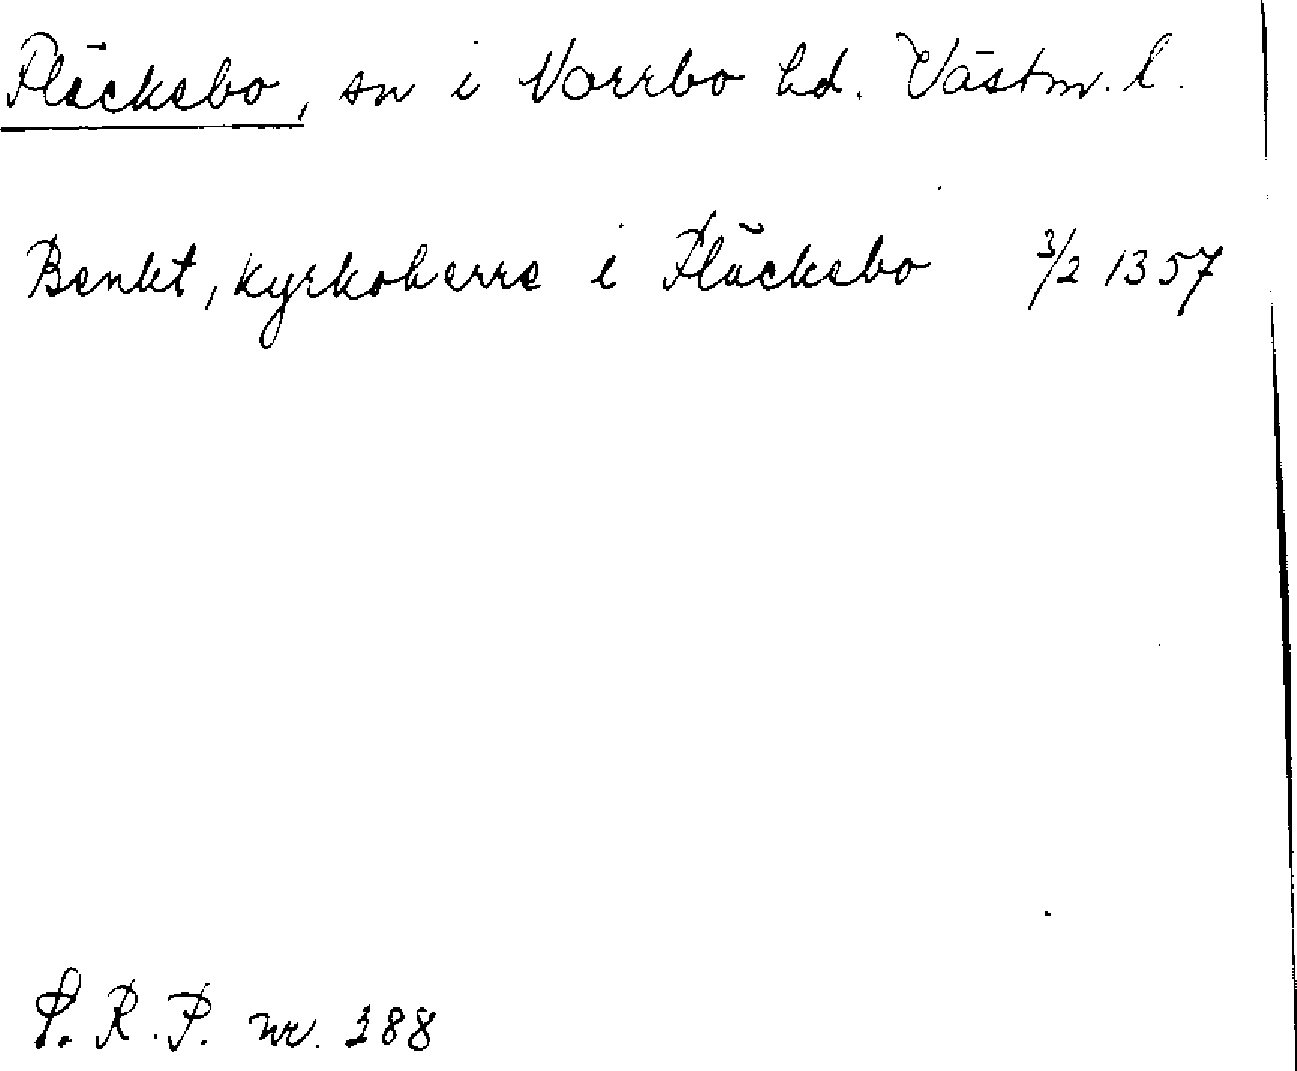 Fläckebo, sn i Norrbo hd. Västm. l.
Benkt, kyrkoherre i Fläckebo 3/2 1357
S. R. P. nr. 388